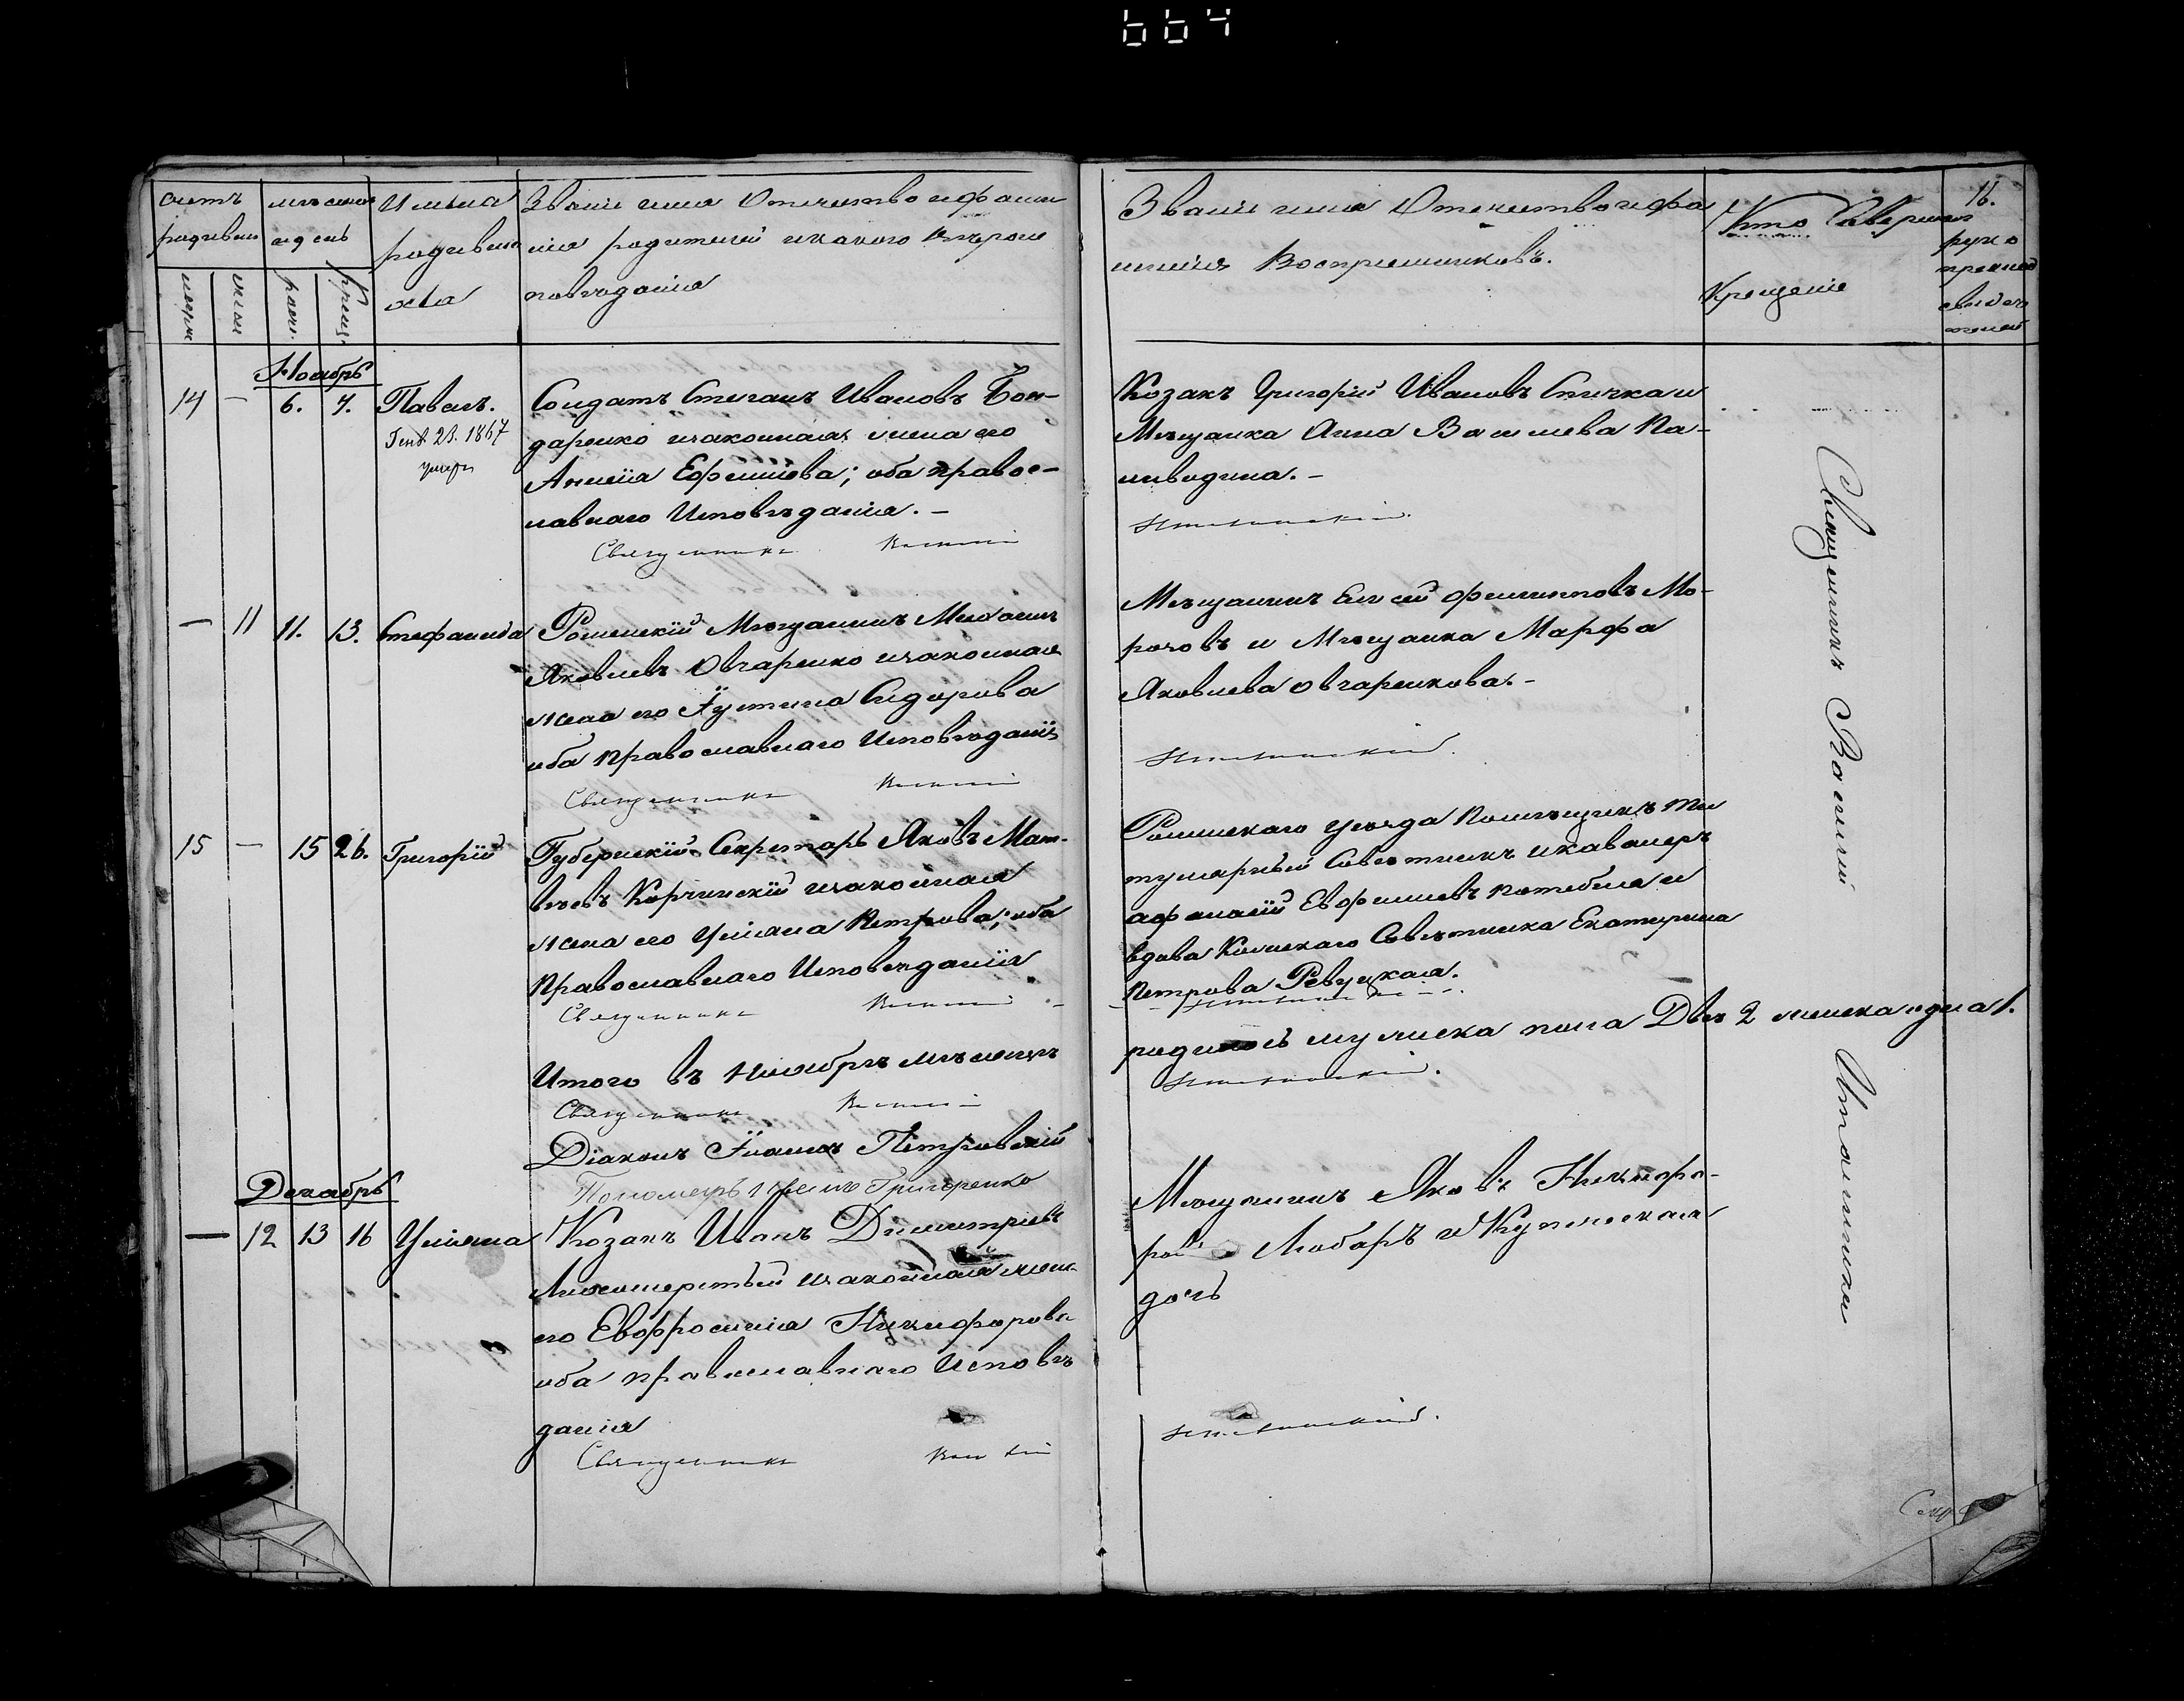 664
счетъ
родивши
мѣсяцъ
и день
Имяна
родивши
хся
Званіе имя Отечество и фами
лія родителей и какого вѣроис
повѣданія
муж
жен
рожд.
крещ
Званіе имя Отечество и фа
милія Воспріемниковъ.
Кто Совершал
Крещеніе
16.
руко
приклад
свидет
телей
Ноябрь
14 — 6. 7. Павелъ.
Генв. 23. 1867
умеръ
Солдатъ Степанъ Ивановъ Бон-
даренко и законная жена его
Анисія Ефимова; оба правос-
лавнаго Исповѣданія. —
Священникъ Василій
Козакъ Григорій Ивановъ Стичка и
Мѣщанка Анна Васильева Па-
ливодина. —
— 11 11. 13. Стефанида
Роменскій Мѣщанинъ Михаилъ
Яковлевъ Овчаренко и законная
жена его Іустина Сидорова
оба православнаго Исповѣданія
Священникъ Василій
Мѣщанинъ Елисей Филиповъ Мо-
розовъ и Мѣщанка Марфа
Яковлева Овчаренкова. —
15 — 15 26. Григорій
Губернскій Секретарь Яковъ Мат-
вѣевъ Корчинскій и законная
жена его Уліана Петрова; оба
Православнаго Исповѣданія
Священникъ Василій
Роменскаго уезда Помѣщикъ Ти
тулярный Совѣтникъ и кавалеръ
Афанасій Евфимиевъ Потебня и
вдова Колежскаго Совѣтника Екатерина
Петрова Ревуцкая.
Итого въ Ноябрѣ мѣсяцѣ
родилось мужеска пола Два 2 женска одна 1.
Священникъ Василій
Діаконъ Іоаннъ Петровскій
Пономарь Григоренко
Декабрь
— 12 13 16 Уліяна
Козакъ Иванъ Димитріевъ
и законная жена
его Евфросинія Никифорова
оба православнаго Исповѣ
данія
Священникъ Василій
Мѣщанинъ Яковъ Никифо-
ровъ Любаръ и Купеческая
дочь
Священникъ Василій